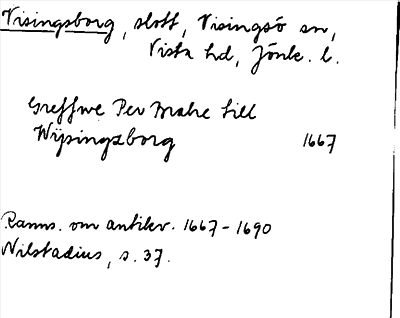 Visingsborg, slott, Visingsö sn,
Vista hd, Jönk. l.
Greffwe Per Brahe till
Wijsingzborg 1667
Ranns. om antikv. 1667-1690
Nilstadius, s. 37.